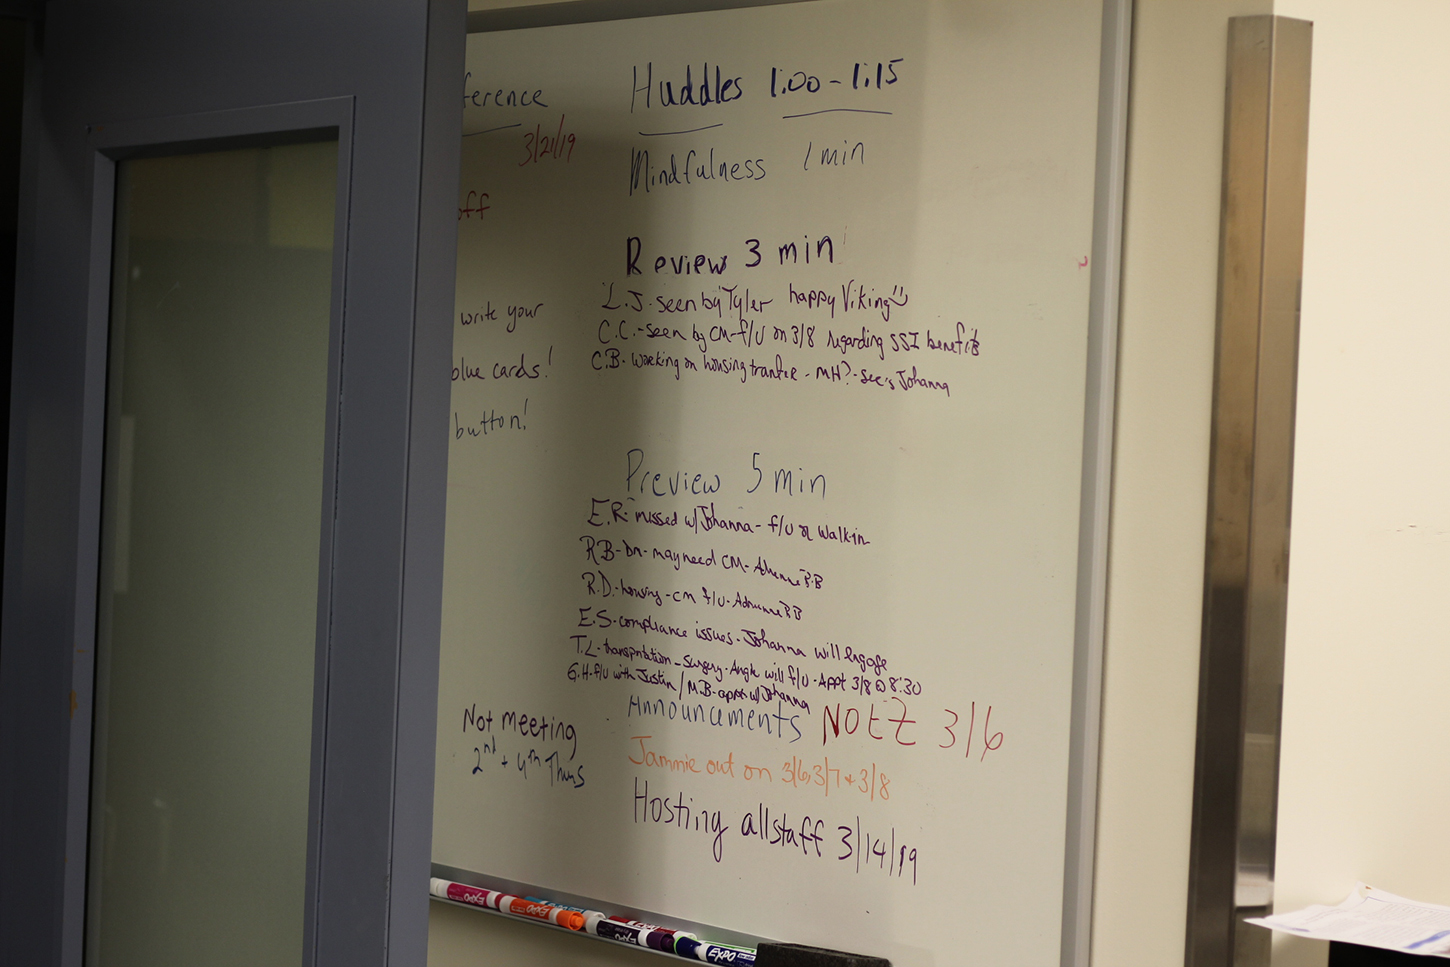 ference
3/21/19
off
write your
blue cards!
button!
Not meeting
2nd + 4th Thurs
Huddles 1:00-1:15
Mindfulness 1 min
Review 3 min
L.J. seen by Tyler happy Viking
C.C.-seen by CM-f/U on 3/8 regarding SSI benefits
C.B- working on housing tranfer - MH?-see's Johanna
Preview 5 min
E.R- missed w/Johanna- f/U or walk-in
RB- may need CM-
R.D.-housing-CM f/U-
E.S-compliance issues-Johanna will engage
T.L-transportation-surgery-Angie will f/U-Appt 3/8 @ 8:30
G.H-f/U with Justin/MB-appt w/Johanna
Announcements NOEZ 3/6
Jammie out on 3/6, 3/7 + 3/8
Hosting allstaff 3/14/19
EXPO
EXPO
EXPO
EXPO